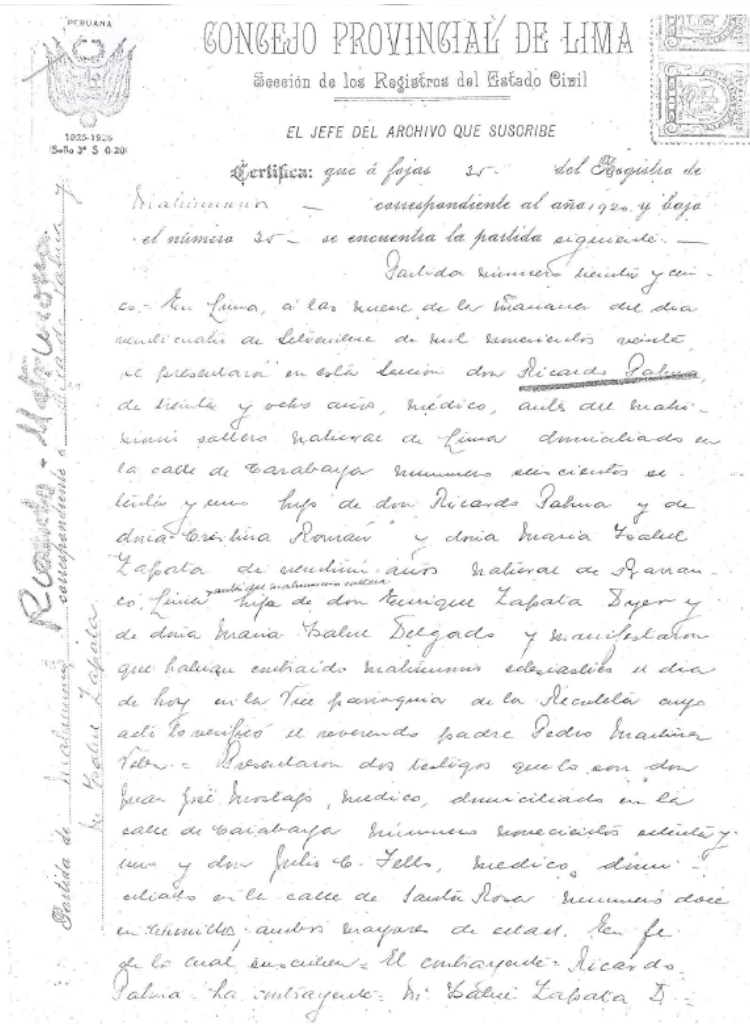 PERUANA
1925-1926
(Sello 3º S 0.20)
CONCEJO PROVINCIAL DE LIMA
Sección de los Registros del Estado Civil
EL JEFE DEL ARCHIVO QUE SUSCRIBE
Certifica: que á fojas 35 - del Registro de
Matrimonios - correspondiente al año 1920 y bajo
el número 35 - se encuentra la partida siguiente. -
Partida número treinta y cin-
co. - En Lima, á las nueve de la mañana del dia
veinticuatro de Setiembre de mil novecientos veinte,
se presentaron en esta Sección don Ricardo Palma,
de treinta y ocho años, médico, antes del matri-
monio soltero natural de Lima domiciliado en
la calle de Carabaya número seiscientos se-
tenta y uno hijo de don Ricardo Palma y de
doña Cristina Román y doña Maria Isabel
Zapata de años natural de Barran-
co, Lima, antes del matrimonio soltera hija de don Enrique Zapata Dyer y
de doña Maria Isabel Delgado y manifestaron
que habian contraido matrimonio eclesiastico el dia
de hoy en la Vice parroquia de la Recoleta cuyo
acto lo verificó el reverendo padre Pedro Martinez
Velez. = Presentaron dos testigos que lo son don
Juan José Mostajo, medico, domiciliado en la
calle de Carabaya número novecientos setenta y
uno y don Julio C. Tello, medico, domi-
ciliado en la calle de Santa Rosa número doce
en Chorrillos, ambos mayores de edad. En fe
de lo cual suscriben = El contrayente = Ricardo
Palma = La contrayente = M. Isabel Zapata D =
Partida de Matrimonio correspondiente a Ricardo Palma y
M. Isabel Zapata